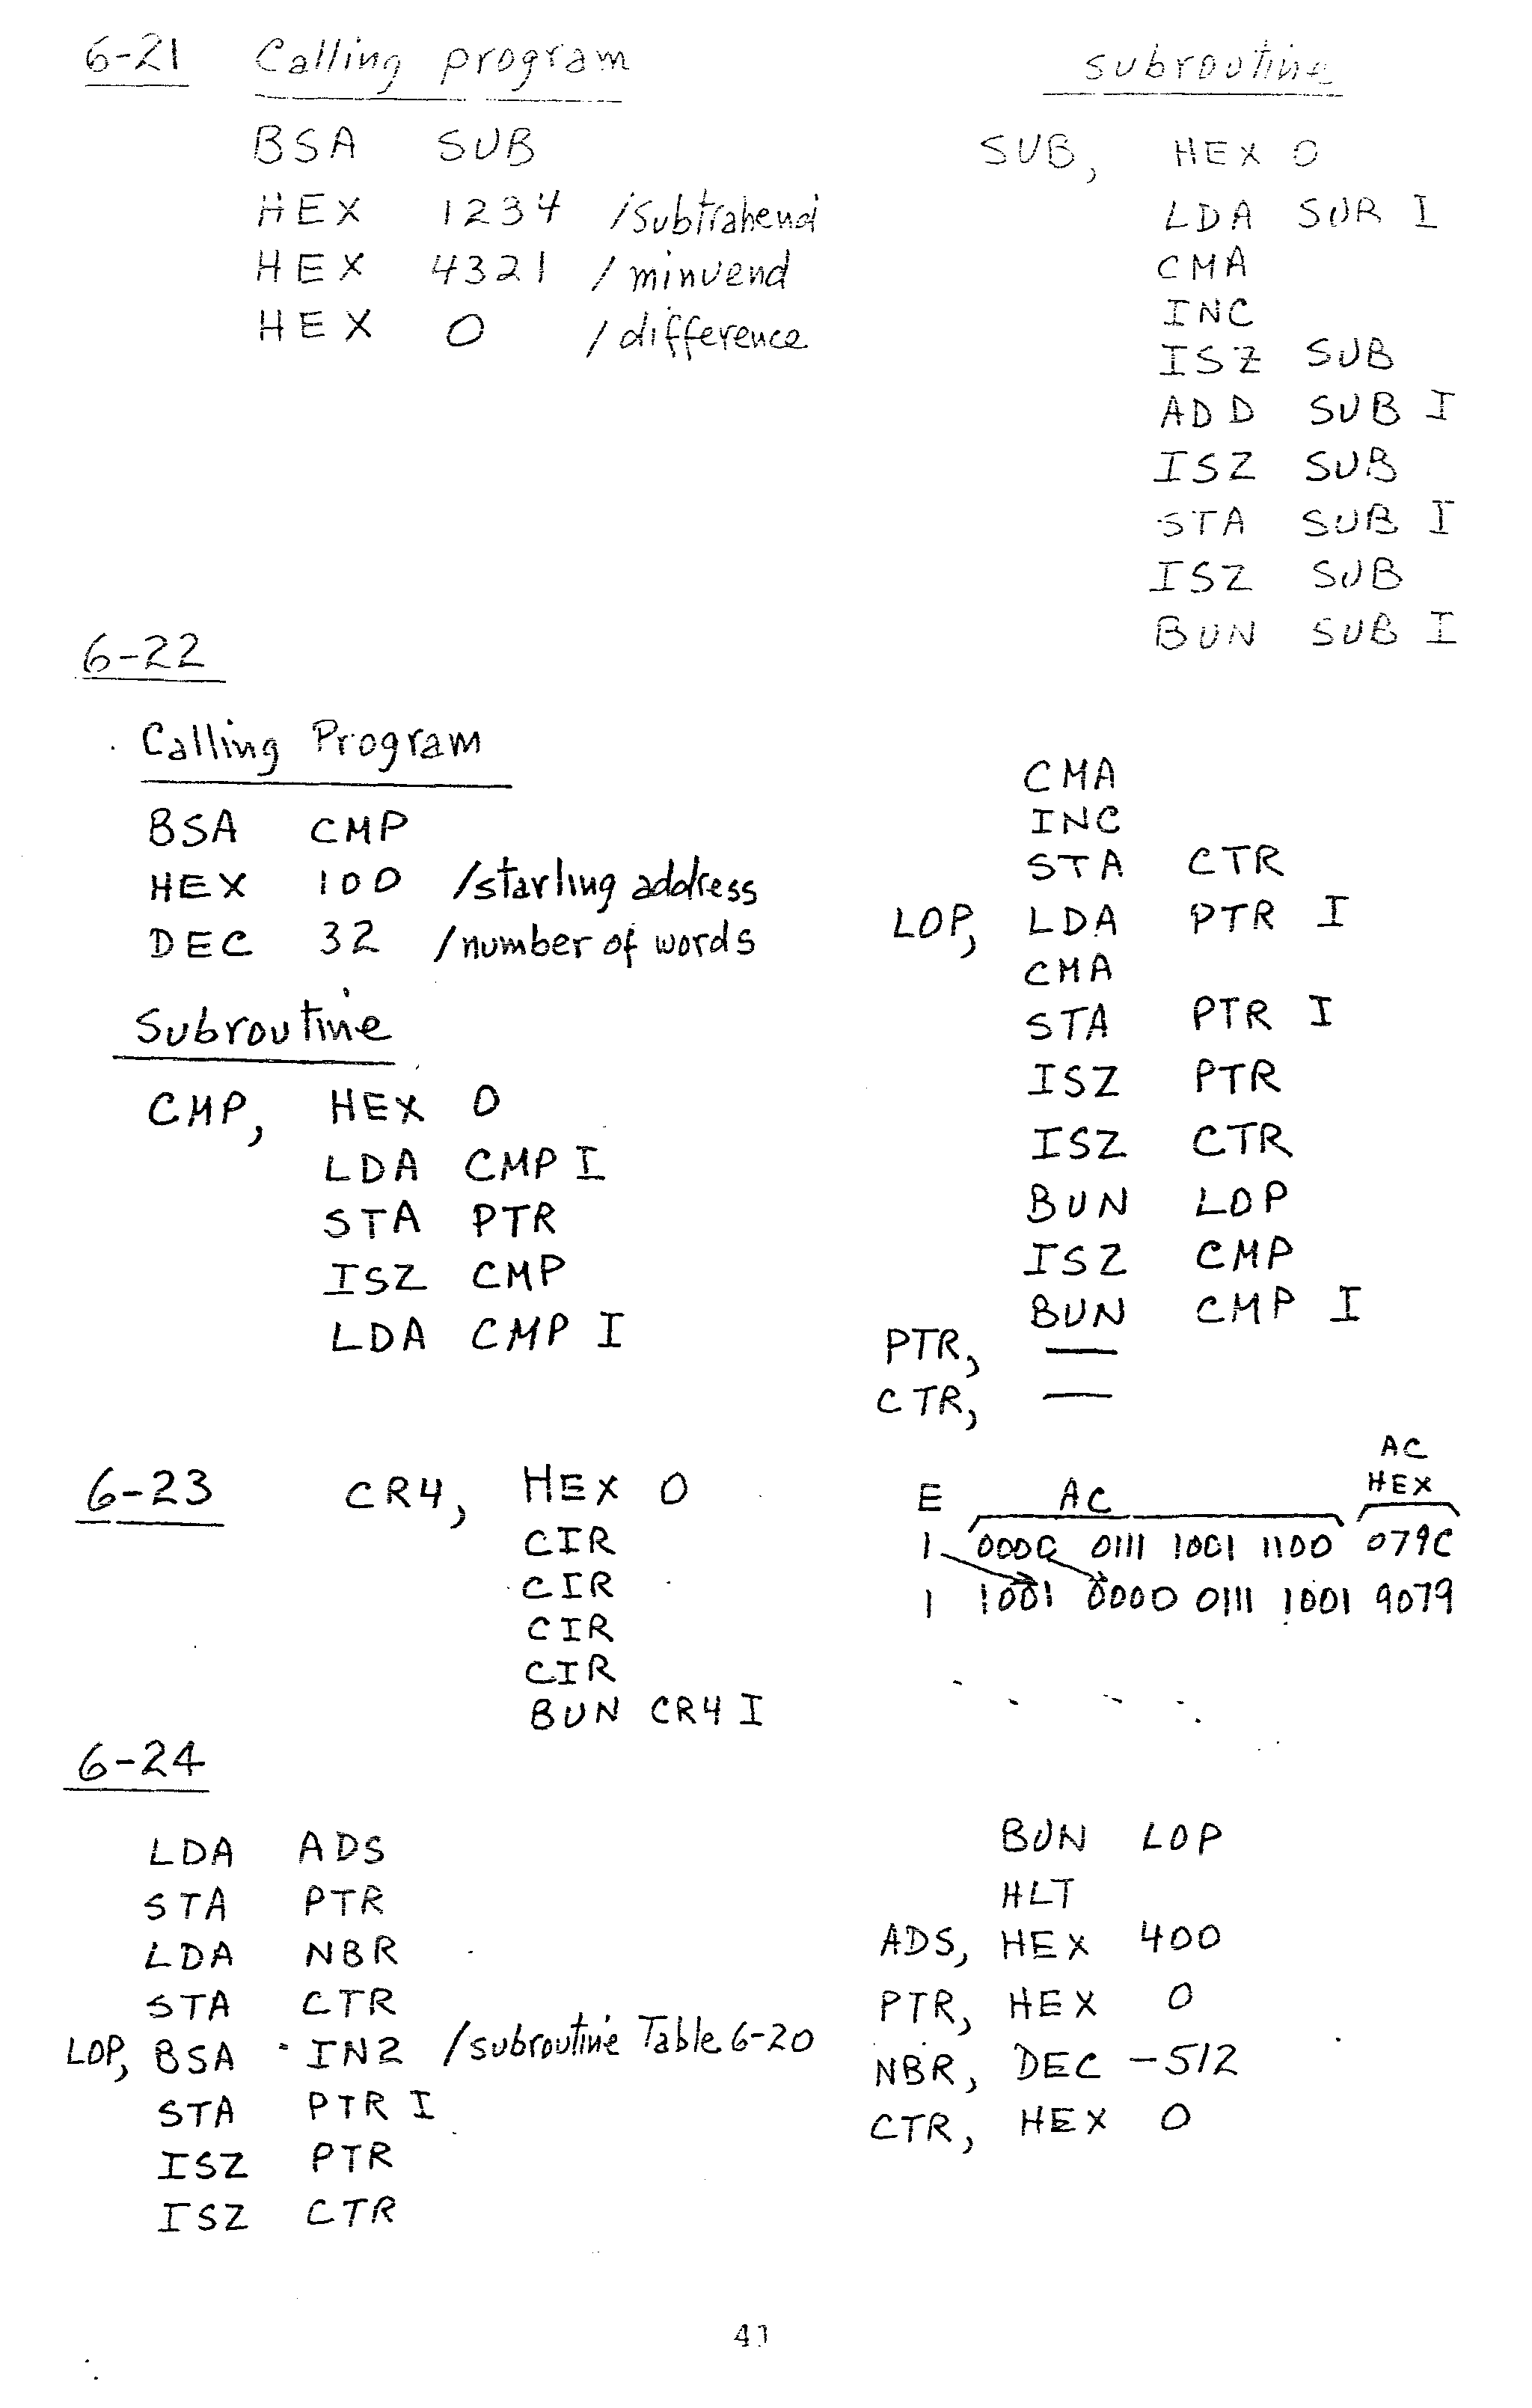 6-21 Calling program
BSA SUB
HEX 1234 /Subtrahend
HEX 4321 / minuend
HEX 0 / difference
subroutine
SUB, HEX 0
LDA SUB I
CMA
INC
ISZ SUB
ADD SUB I
ISZ SUB
STA SUB I
ISZ SUB
BUN SUB I
6-22
Calling Program
BSA CMP
HEX 100 /starting address
DEC 32 /number of words
Subroutine
CMP, HEX 0
LDA CMP I
STA PTR
ISZ CMP
LDA CMP I
CMA
INC
STA CTR
LOP, LDA PTR I
CMA
STA PTR I
ISZ PTR
ISZ CTR
BUN LOP
ISZ CMP
BUN CMP I
PTR, —
CTR, —
6-23 CR4, HEX 0
CIR
CIR
CIR
CIR
BUN CR4 I
AC
E AC HEX
1 0000 0111 1001 1100 079C
1 1001 0000 0111 1001 9079
6-24
LDA ADS
STA PTR
LDA NBR
STA CTR
LOP, BSA IN2 /subroutine Table 6-20
STA PTR I
ISZ PTR
ISZ CTR
BUN LOP
HLT
ADS, HEX 400
PTR, HEX 0
NBR, DEC -512
CTR, HEX 0
41